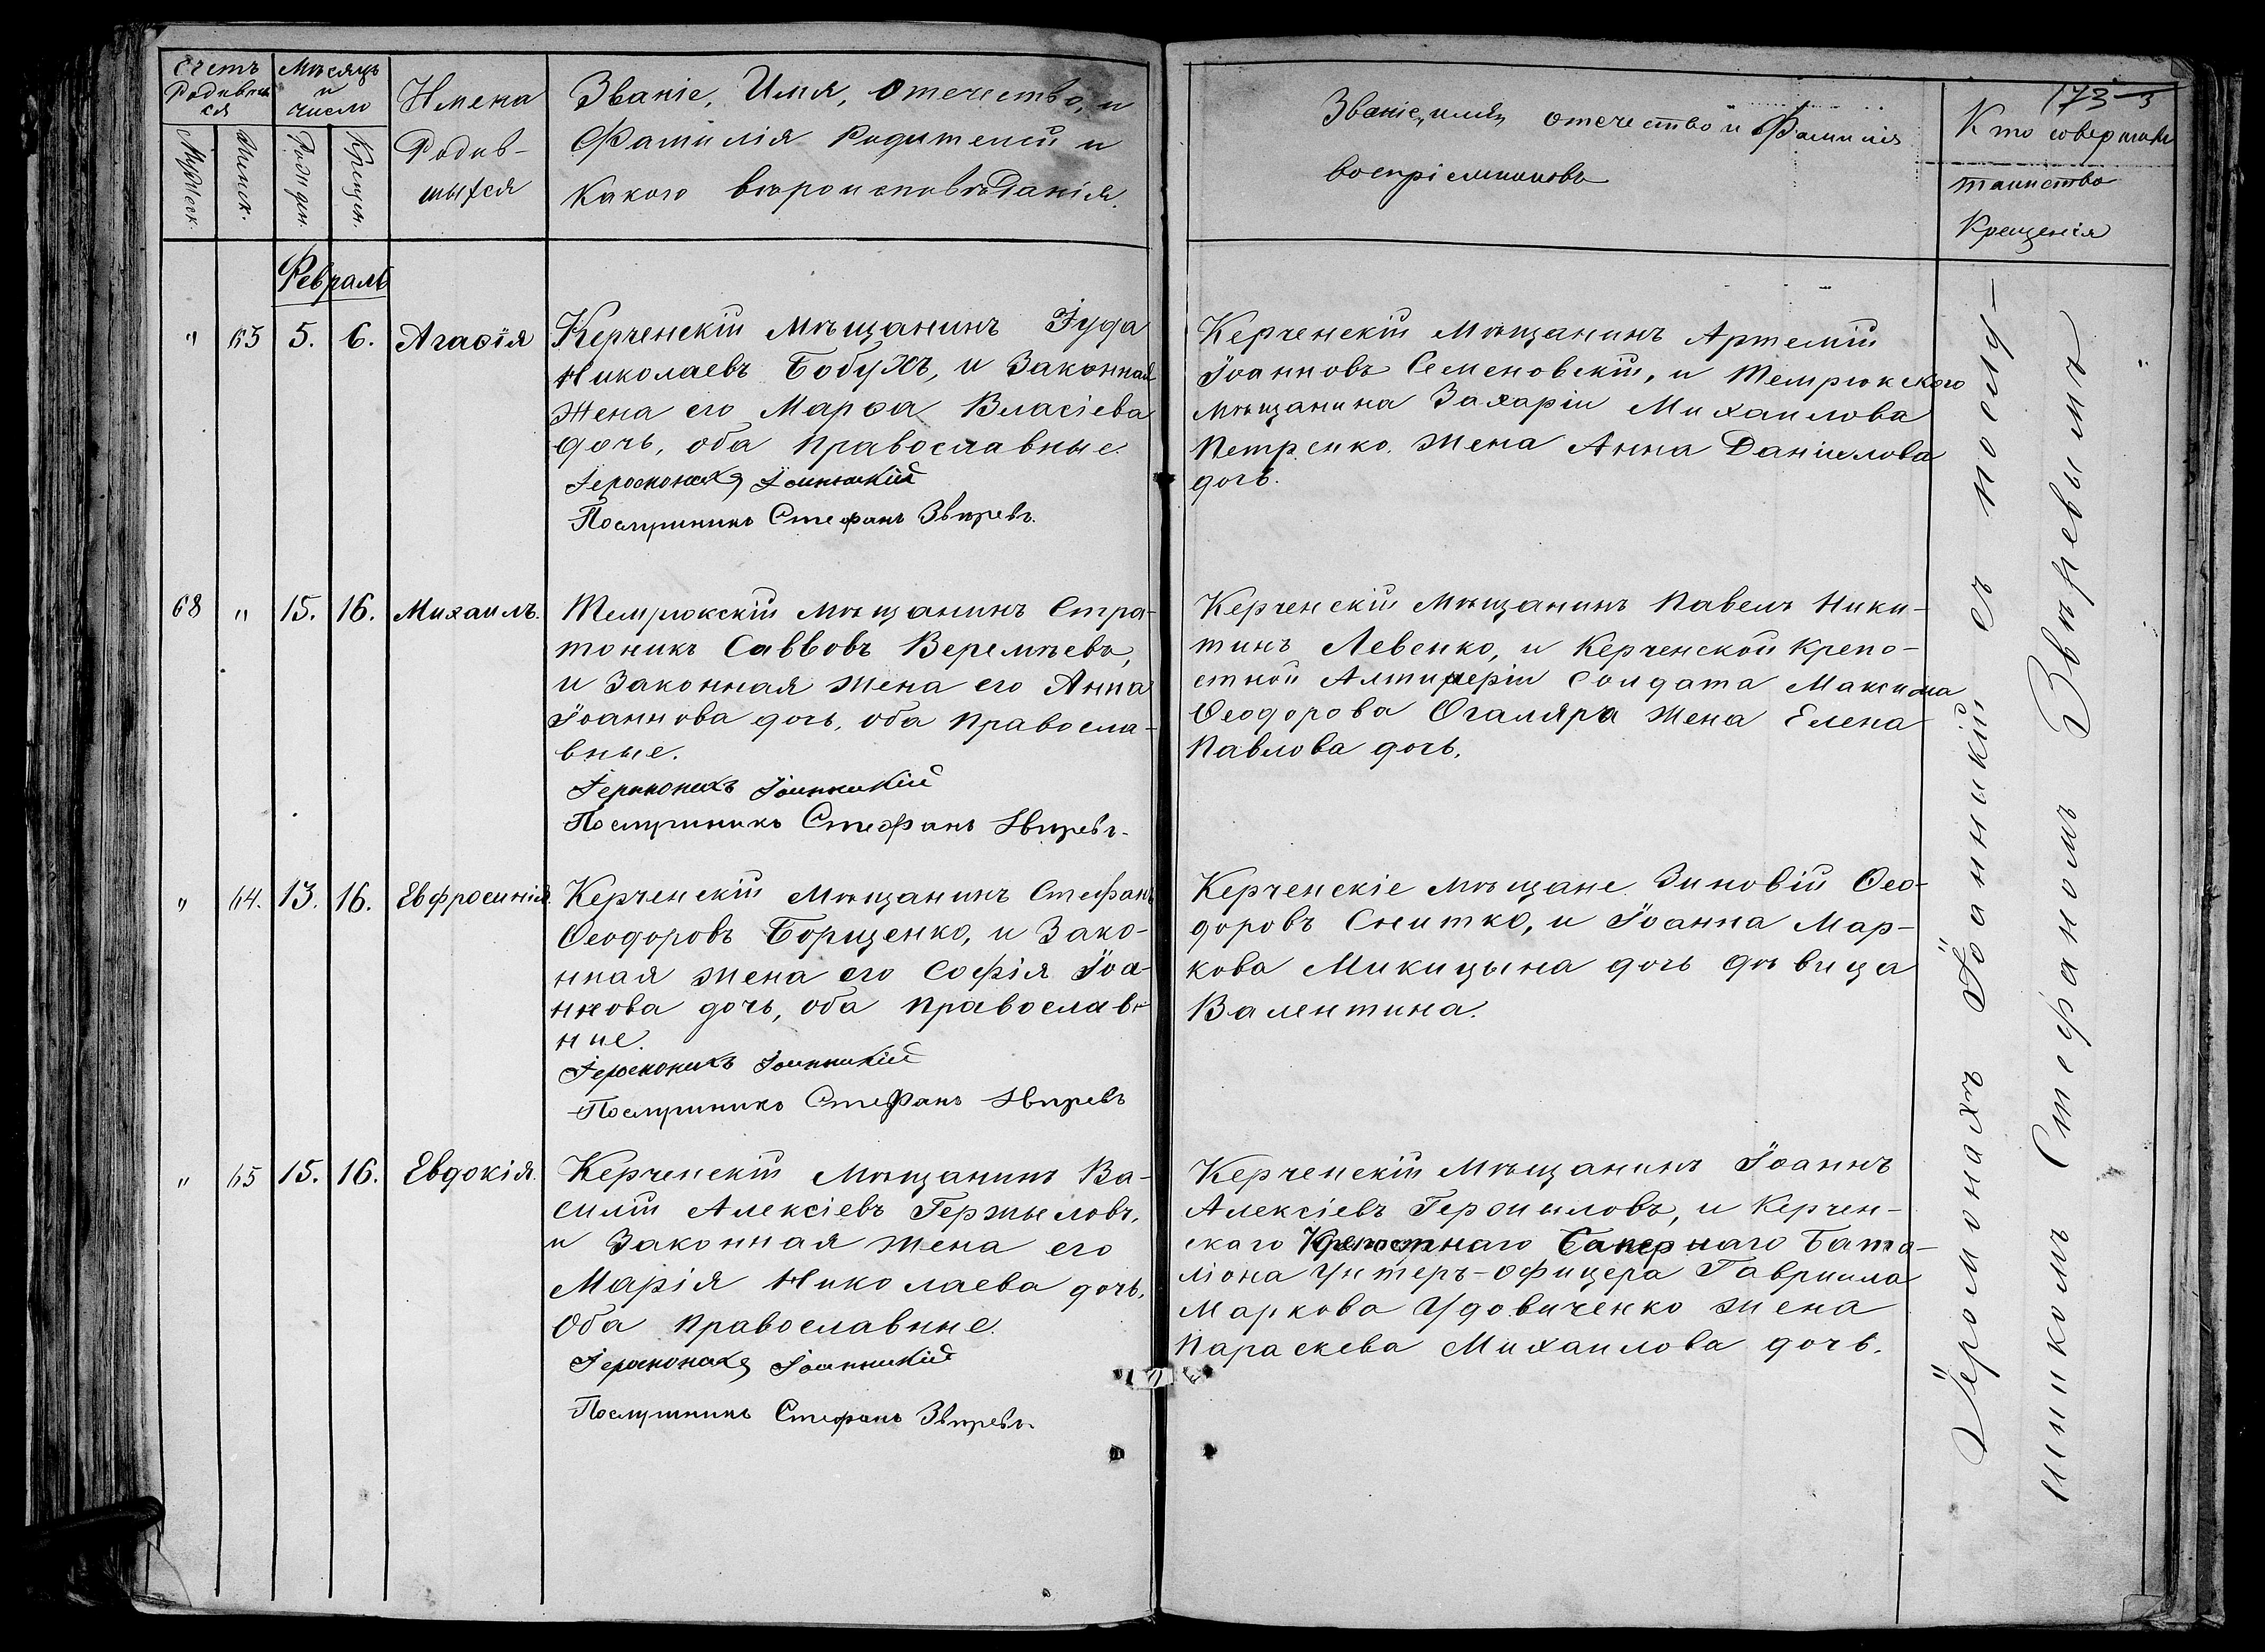 173
Счетъ
Родивш
ся
Мѣсяцъ
и
число
Мужеск.
Женск.
Рожден.
Крещен.
Имена
Родив-
шыхся
Званіе, Имя, Отечество, и
Фамилія Родителей и
Какого вѣроисповѣданія.
Званіе, имя, отечество и Фамилія
воспріемниковъ
Кто совершалъ
таинство
Крещенія
Февраль
" 63 5. 6. Агафія
Керченскій Мѣщанинъ Іуда
Николаевъ Бобухъ, и Законная
Жена его Марѳа Власіева
дочь, оба Православные.
Іеромонахъ Іоанникій
Послушникъ Стефанъ Звѣревъ.
Керченскій Мѣщанинъ Артемій
Іоанновъ Семеновскій, и Темрюкского
мѣщанина Захаріи Михаилова
Петренко жена Анна Даніилова
дочь.
68 " 15. 16. Михаилъ.
Темрюкскій мѣщанинъ Стра-
тоникъ Саввовъ Веремѣевъ,
и Законная жена его Анна
Іоаннова дочь, оба Правосла-
вные.
Іеромонахъ Іоанникій
Послушникъ Стефанъ Звѣревъ.
Керченскій Мѣщанинъ Павелъ Ники-
тинъ Левенко, и Керченской Крепо-
стной Алтилеріи Солдата Максима
Ѳеодорова Огаляра жена Елена
Павлова дочь.
" 64. 13. 16. Евфросинія.
Керченскій Мѣщанинъ Стефанъ
Ѳеодоровъ Борщенко, и Зако-
нная жена его Софія Іоа-
ннова дочь, оба Православн-
ные.
Іеромонахъ Іоанникій
Послушникъ Стефанъ Звѣревъ
Керченскіе мѣщане Зиновій Ѳео-
доровъ Снитко, и Іоанна Мар-
кова Микицына дочь дѣвица
Валентина.
" 65 15. 16. Евдокія.
Керченскій Мѣщанинъ Ва-
силій Алексіевъ Гержыловъ,
и Законная жена его
Марія Николаева дочь.
Оба Православные.
Іеромонахъ Іоанникій
Послушникъ Стефанъ Звѣревъ.
Керченскій Мѣщанинъ Іоаннъ
Алексіевъ Гержиловъ, и Керчен-
скаго Крепостнаго Сапернаго Бата-
ліона Унтеръ-офицера Гавриила
Маркова Удовиченко жена
Параскева Михаилова дочь.
Іеромонахъ Іоанникій съ послу-
шникомъ Стефаномъ Звѣревымъ